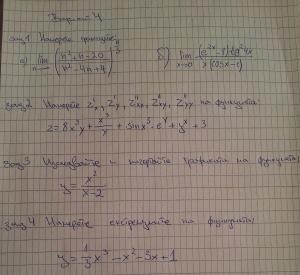 Вариант 4
зад 1 Намерете границите:
а) lim (n²+n-20 / n²-4n+4) б) lim x→0 (e^2x -1) tg²4x / x(cosx-1)
зад 2 Намерете z'x, z'y, z''xx, z''xy, z''yy на функцията:
z = 8x³y + x³/y + sinx³. e^y + y^x + 3
зад 3 Изследвайте и начертайте графиката на функцията:
y = x²/x-2
зад 4 Намерете екстремумите на функцията:
y = 1/3 x³ - x² - 3x + 1